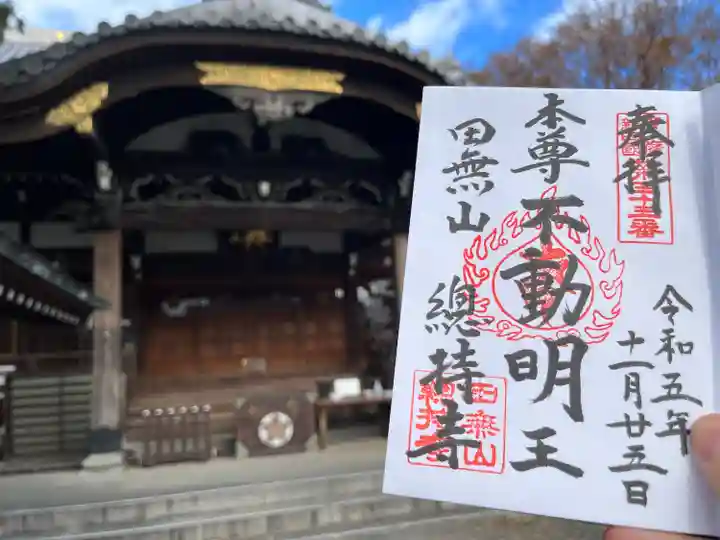 奉拝
令和五年
十一月廿五日
本尊不動明王
田無山
總持寺
田無山
總持寺